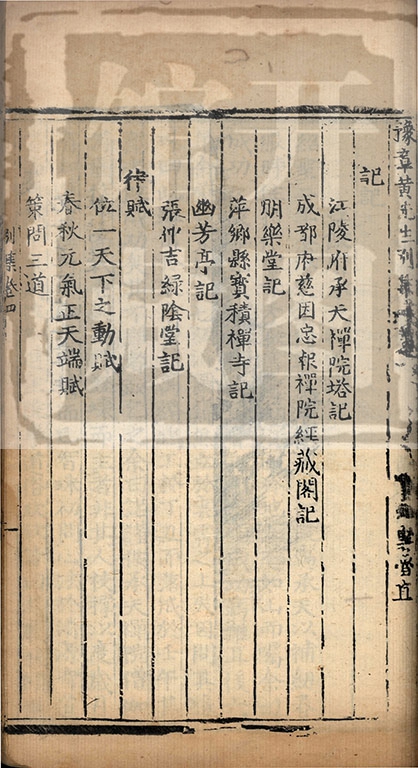 豫章黄先生別集
記
江陵府承天禪院塔記
成都府慈因忠報禪院經藏閣記
明樂堂記
萍鄉縣寶積禪寺記
幽芳亭記
張仲吉綠陰堂記
律賦
位一天下之動賦
春秋元氣正天端賦
策問三道
別集卷四